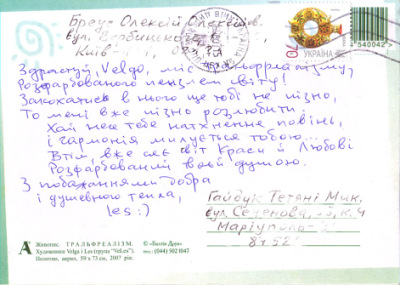 Бреус Олексій Олексійов.
вул. Вербицького
Київ
540042
Здрастуй, Velgo, міс
Розфарбованого пензлем світу!
Закохатись в нього ще тобі не пізно,
То мені вже пізно розлюбити.
Хай несе тебе натхнення повінь,
і гармонія милується тобою...
Втім, вже сяє світ Краси й Любові
Розфарбований твоєю душою.
З побажаннями добра
і душевного тепла,
les :)
Гайдук Тетяні Мик.
вул. Семенова,
Маріуполь
Живопис. ТРАЛЬФРЕАЛІЗМ.
Художники Velga і Les (група "Vel.es").
Полотно, акрил, 59 x 73 см, 2007 рік.
тел.: (044) 502 1047